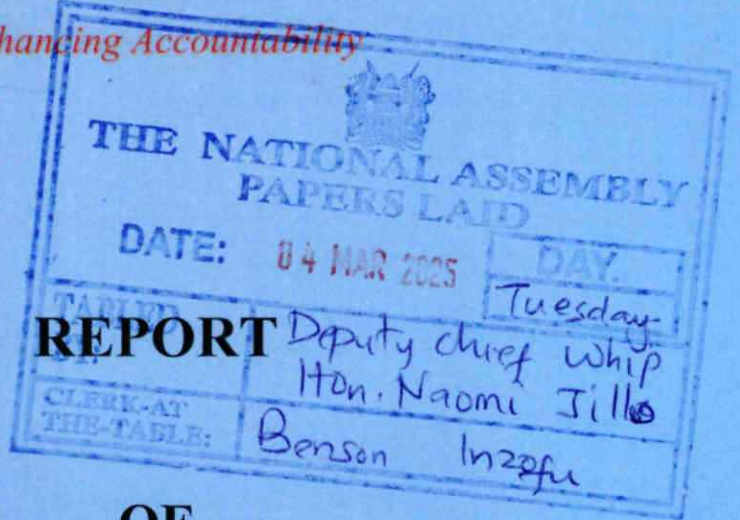 hancing Accountability
THE NATIONAL ASSEMBLY
PAPERS LAID
DATE: 04 MAR 2025 DAY.
Tuesday.
TABLED
BY:
REPORT
Deputy chief Whip
Hon. Naomi Jillo
CLERK-AT
THE-TABLE:
Benson Inzofu
OF